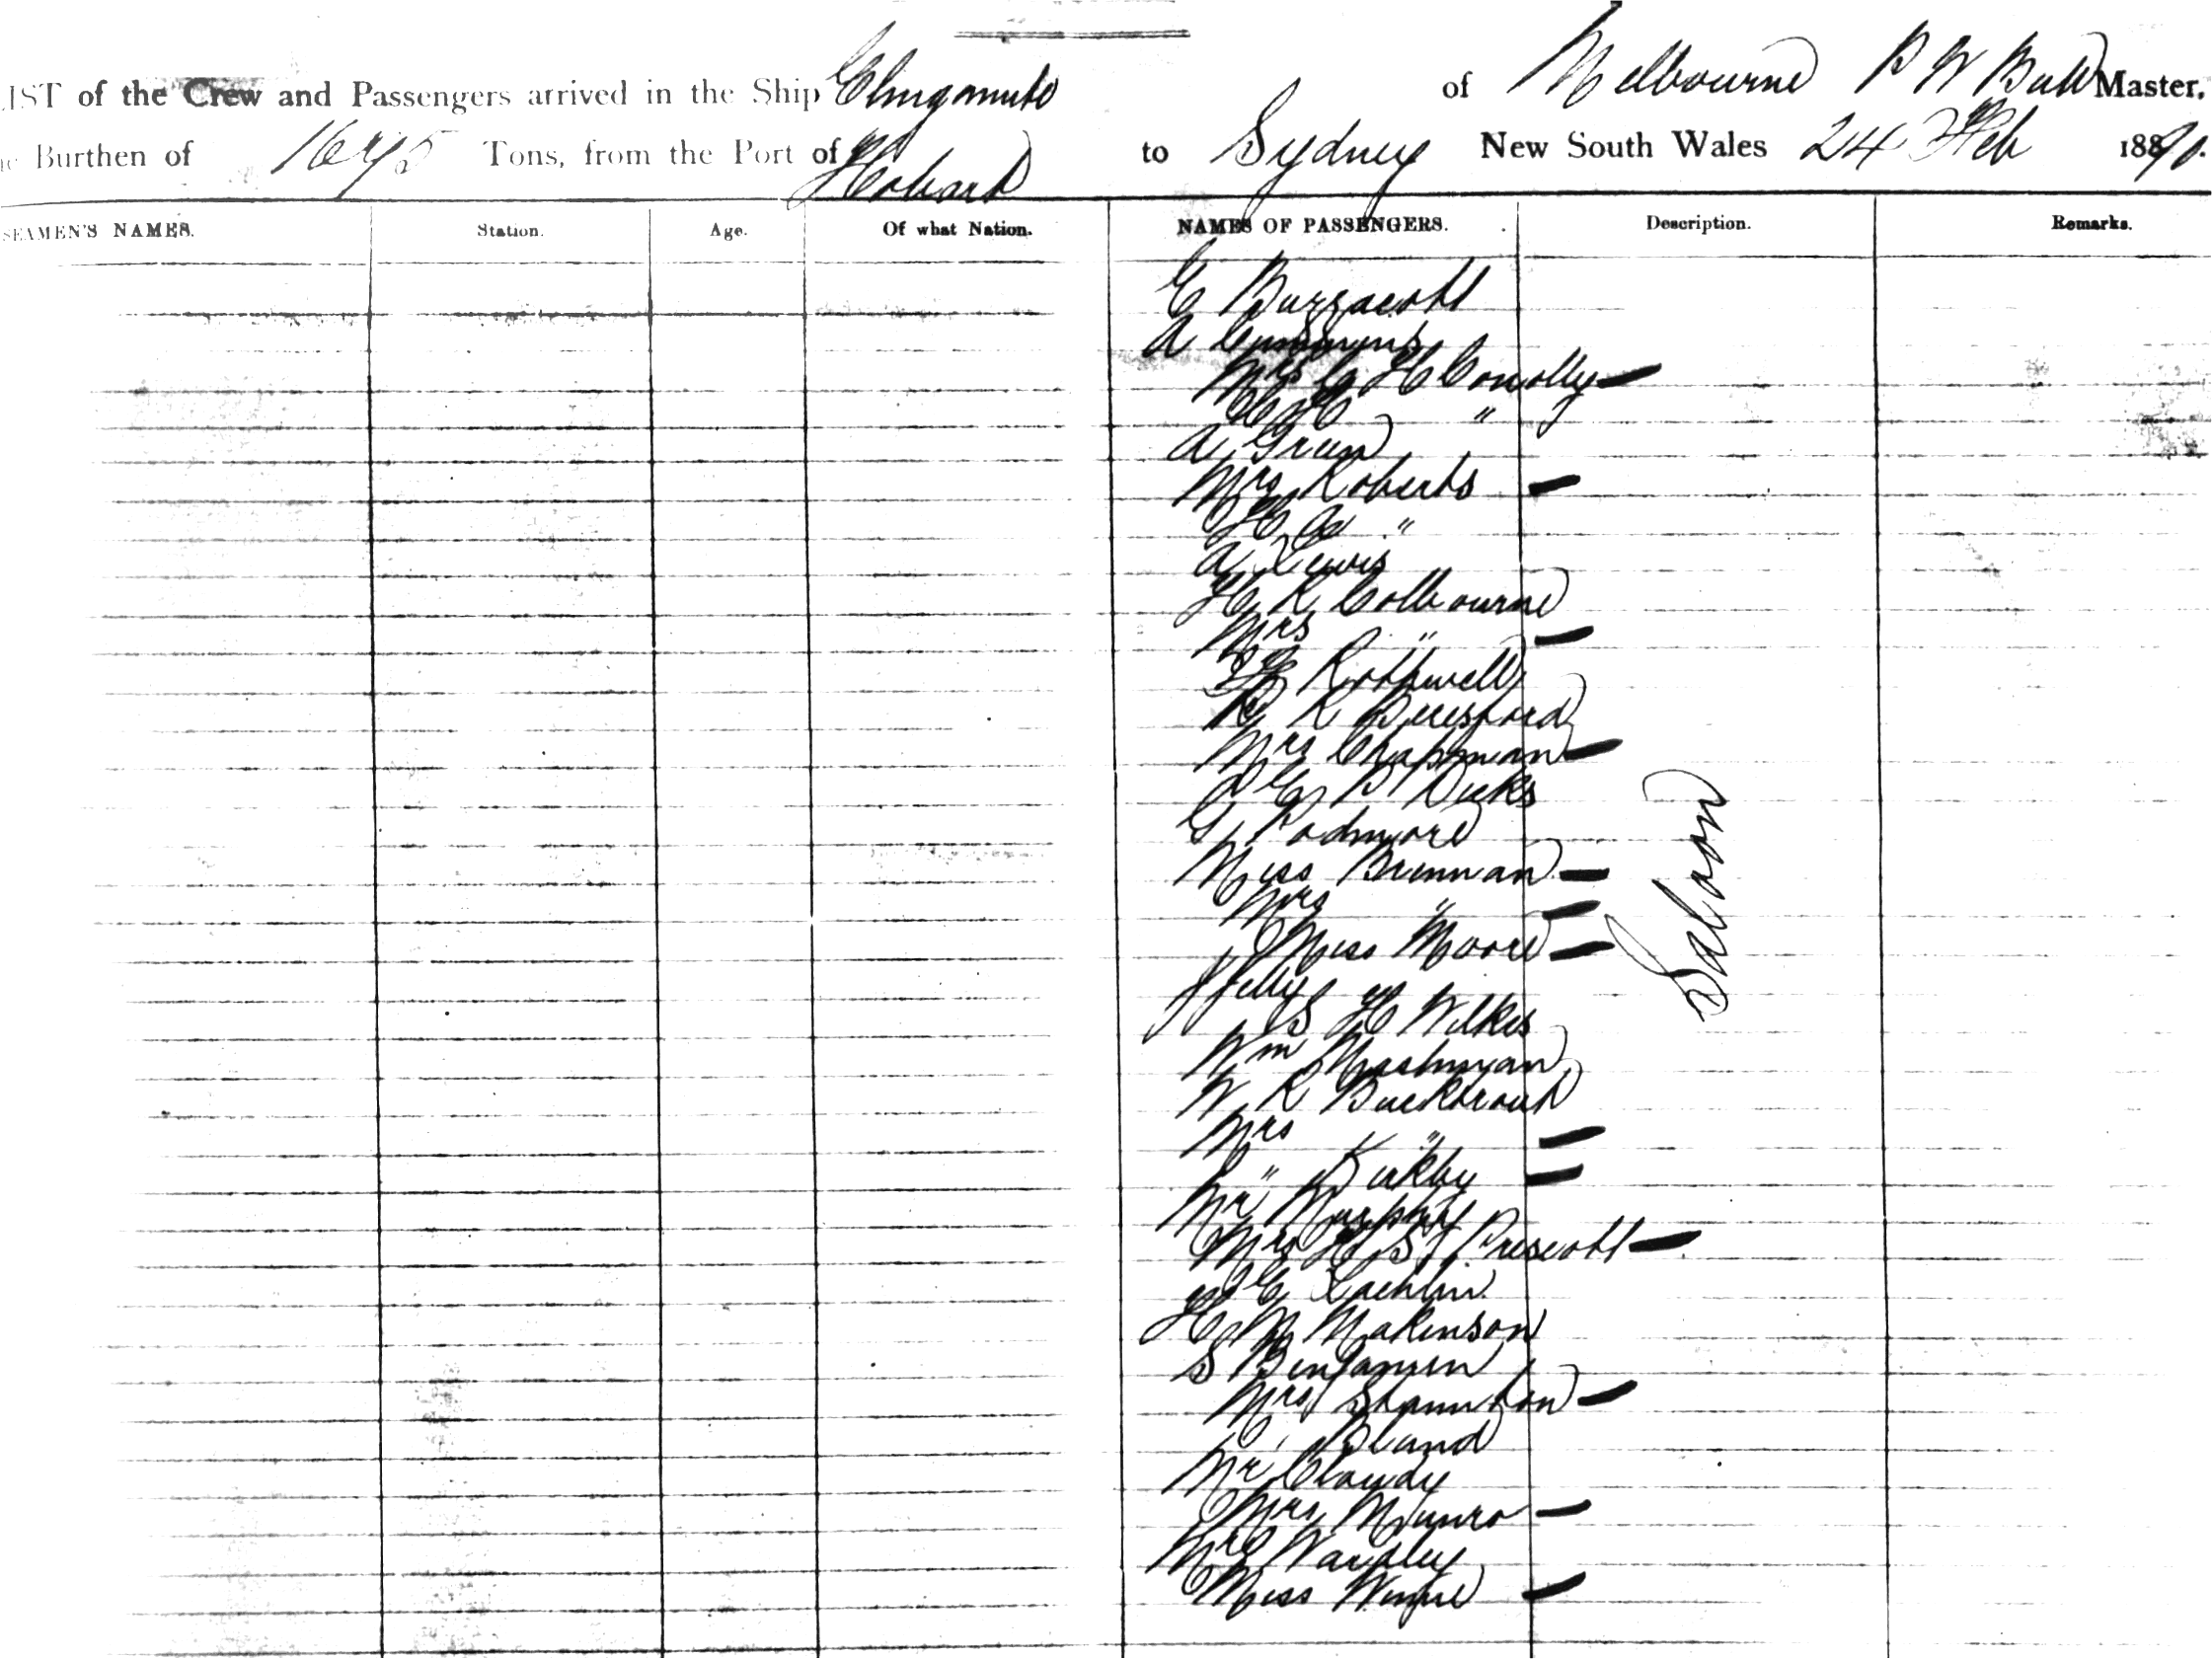 LIST of the Crew and Passengers arrived in the Ship Elingamite of Melbourne P W Bull Master,
Burthen of 1675 Tons, from the Port of Hobart to Sydney New South Wales 24 Feb 1890.
SEAMEN'S NAMES. Station. Age. Of what Nation. NAMES OF PASSENGERS. Description. Remarks.
E Burzacott
A Cummins
Mrs C H Conolly —
C H "
A Green
Mrs Roberts —
H A "
A Lewis
H R Colbourne
Mrs " —
Rothwell
R Beresford
Mrs Chapman —
B Dicks
G Podmore
Miss Brennan —
Mrs " —
Miss Moore —
J Jelly
S H Wilkes
Wm Mashman
W R Buckbrout
Mrs " —
" Kirkby —
Mr Murphy
Mrs H S Prescott —
E Lachlin
H M Makinson
S Benjamin
Mrs Staunton —
Bland
Mr Cloudy
Mrs Munro —
Mr Wardley
Miss Winfred —
Saloon